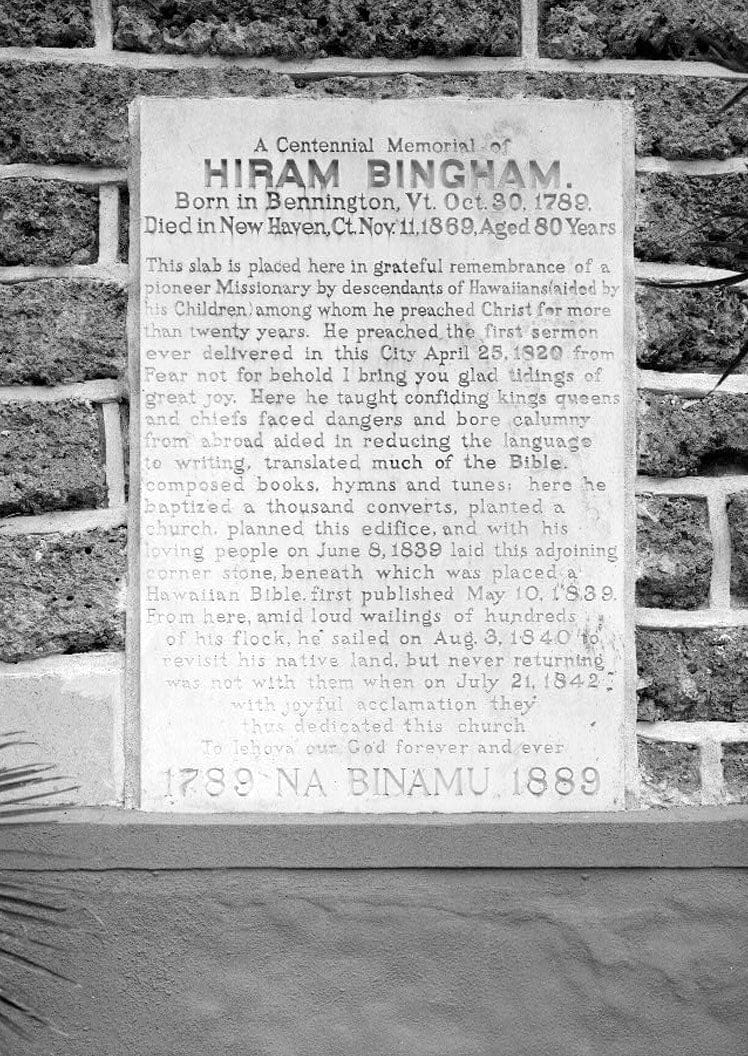 A Centennial Memorial of
HIRAM BINGHAM.
Born in Bennington, Vt. Oct. 30. 1789.
Died in New Haven, Ct. Nov. 11, 1869, Aged 80 Years
This slab is placed here in grateful remembrance of a
pioneer Missionary by descendants of Hawaiians (aided by
his Children) among whom he preached Christ for more
than twenty years. He preached the first sermon
ever delivered in this City April 25, 1820 from
Fear not for behold I bring you glad tidings of
great joy. Here he taught confiding kings queens
and chiefs faced dangers and bore calumny
from abroad aided in reducing the language
to writing, translated much of the Bible.
composed books, hymns and tunes; here he
baptized a thousand converts, planted a
church, planned this edifice, and with his
loving people on June 8, 1839 laid this adjoining
corner stone, beneath which was placed a
Hawaiian Bible, first published May 10, 1839.
From here, amid loud wailings of hundreds
of his flock, he sailed on Aug. 3, 1840 to
revisit his native land, but never returning
was not with them when on July 21, 1842,
with joyful acclamation they
thus dedicated this church
To Iehova our God forever and ever
1789 NA BINAMU 1889